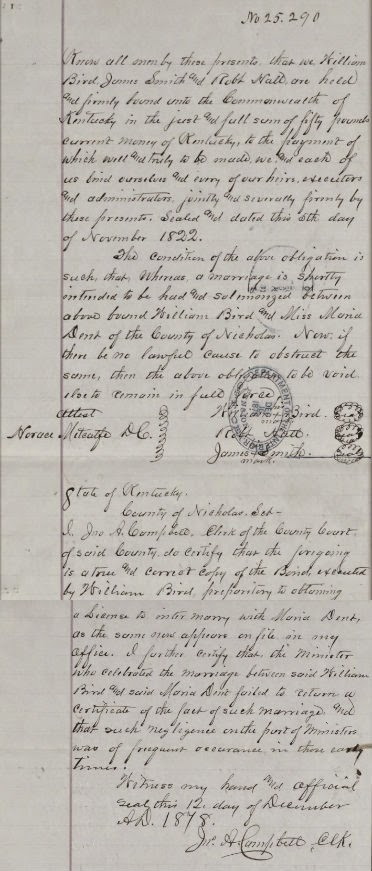 No 25.290
Know all men by these presents, that we, William
Bird, James Smith and Robt Hall, are held
and firmly bound unto the Commonwealth of
Kentucky in the just and full sum of fifty pounds
current money of Kentucky, to the payment of
which well and truly to be made, we, and each of
us bind ourselves and every of our heirs, executors
and administrators, jointly and severally firmly by
these presents. Sealed and dated this 5th day
of November 1822.
The condition of the above obligation is
such, that Whereas, a marriage is shortly
intended to be had and solmonized between
above bound William Bird and Miss Maria
Dent of the County of Nicholas. Now, if
there be no lawful cause to obstruct the
same, then the above to be void
else to remain in full force
Attest William Bird.
Horace Metcalfe D.C. Robt Hall.
James Smith.
mark.
State of Kentucky.
County of Nicholas. Sct-
I, Jno A. Campbell, Clerk of the County Court
of said County, do certify that the foregoing
is a true and correct copy of the Bond, executed
by William Bird, prepritory to obtaining
a License to inter marry with Maria Dent,
as the same now appears on file in my
office. I further certify that, the Minister
who celebrated the marriage between said William
Bird and said Maria Dent failed to return a
certificate of the fact of such marriage, and
that such negligence on the part of Ministers
was of frequent occurance in those early
times.
Witness my hand and official
seal this 12. day of December
A.D. 1878.
Jno. A Campbell, Clk.